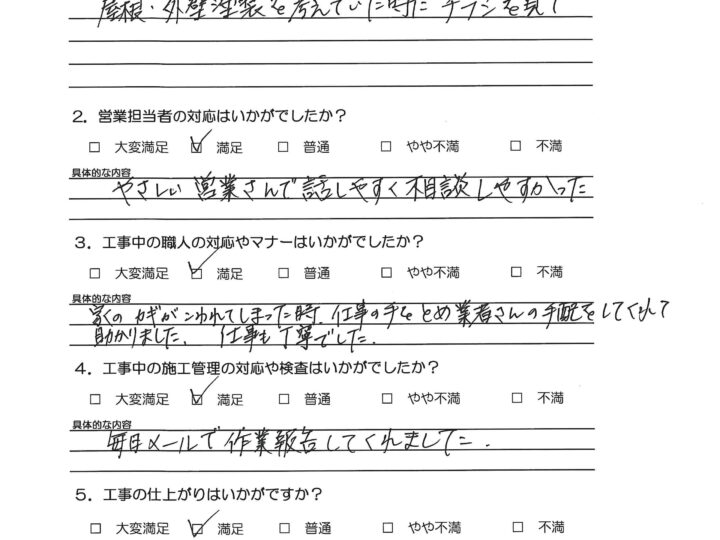 屋根・外壁塗装を考えていた時に チラシを見て
2．営業担当者の対応はいかがでしたか？
□ 大変満足 ☑ 満足 □ 普通 □ やや不満 □ 不満
具体的な内容
やさしい 営業さんで 話しやすく 相談しやすかった
3．工事中の職人の対応やマナーはいかがでしたか？
□ 大変満足 ☑ 満足 □ 普通 □ やや不満 □ 不満
具体的な内容
家のカギがこわれてしまった時、仕事の手をとめ業者さんの手配をしてくれて
助かりました。 仕事も丁寧でした。
4．工事中の施工管理の対応や検査はいかがでしたか？
□ 大変満足 ☑ 満足 □ 普通 □ やや不満 □ 不満
具体的な内容
毎日メールで作業報告してくれました。
5．工事の仕上がりはいかがですか？
□ 大変満足 ☑ 満足 □ 普通 □ やや不満 □ 不満